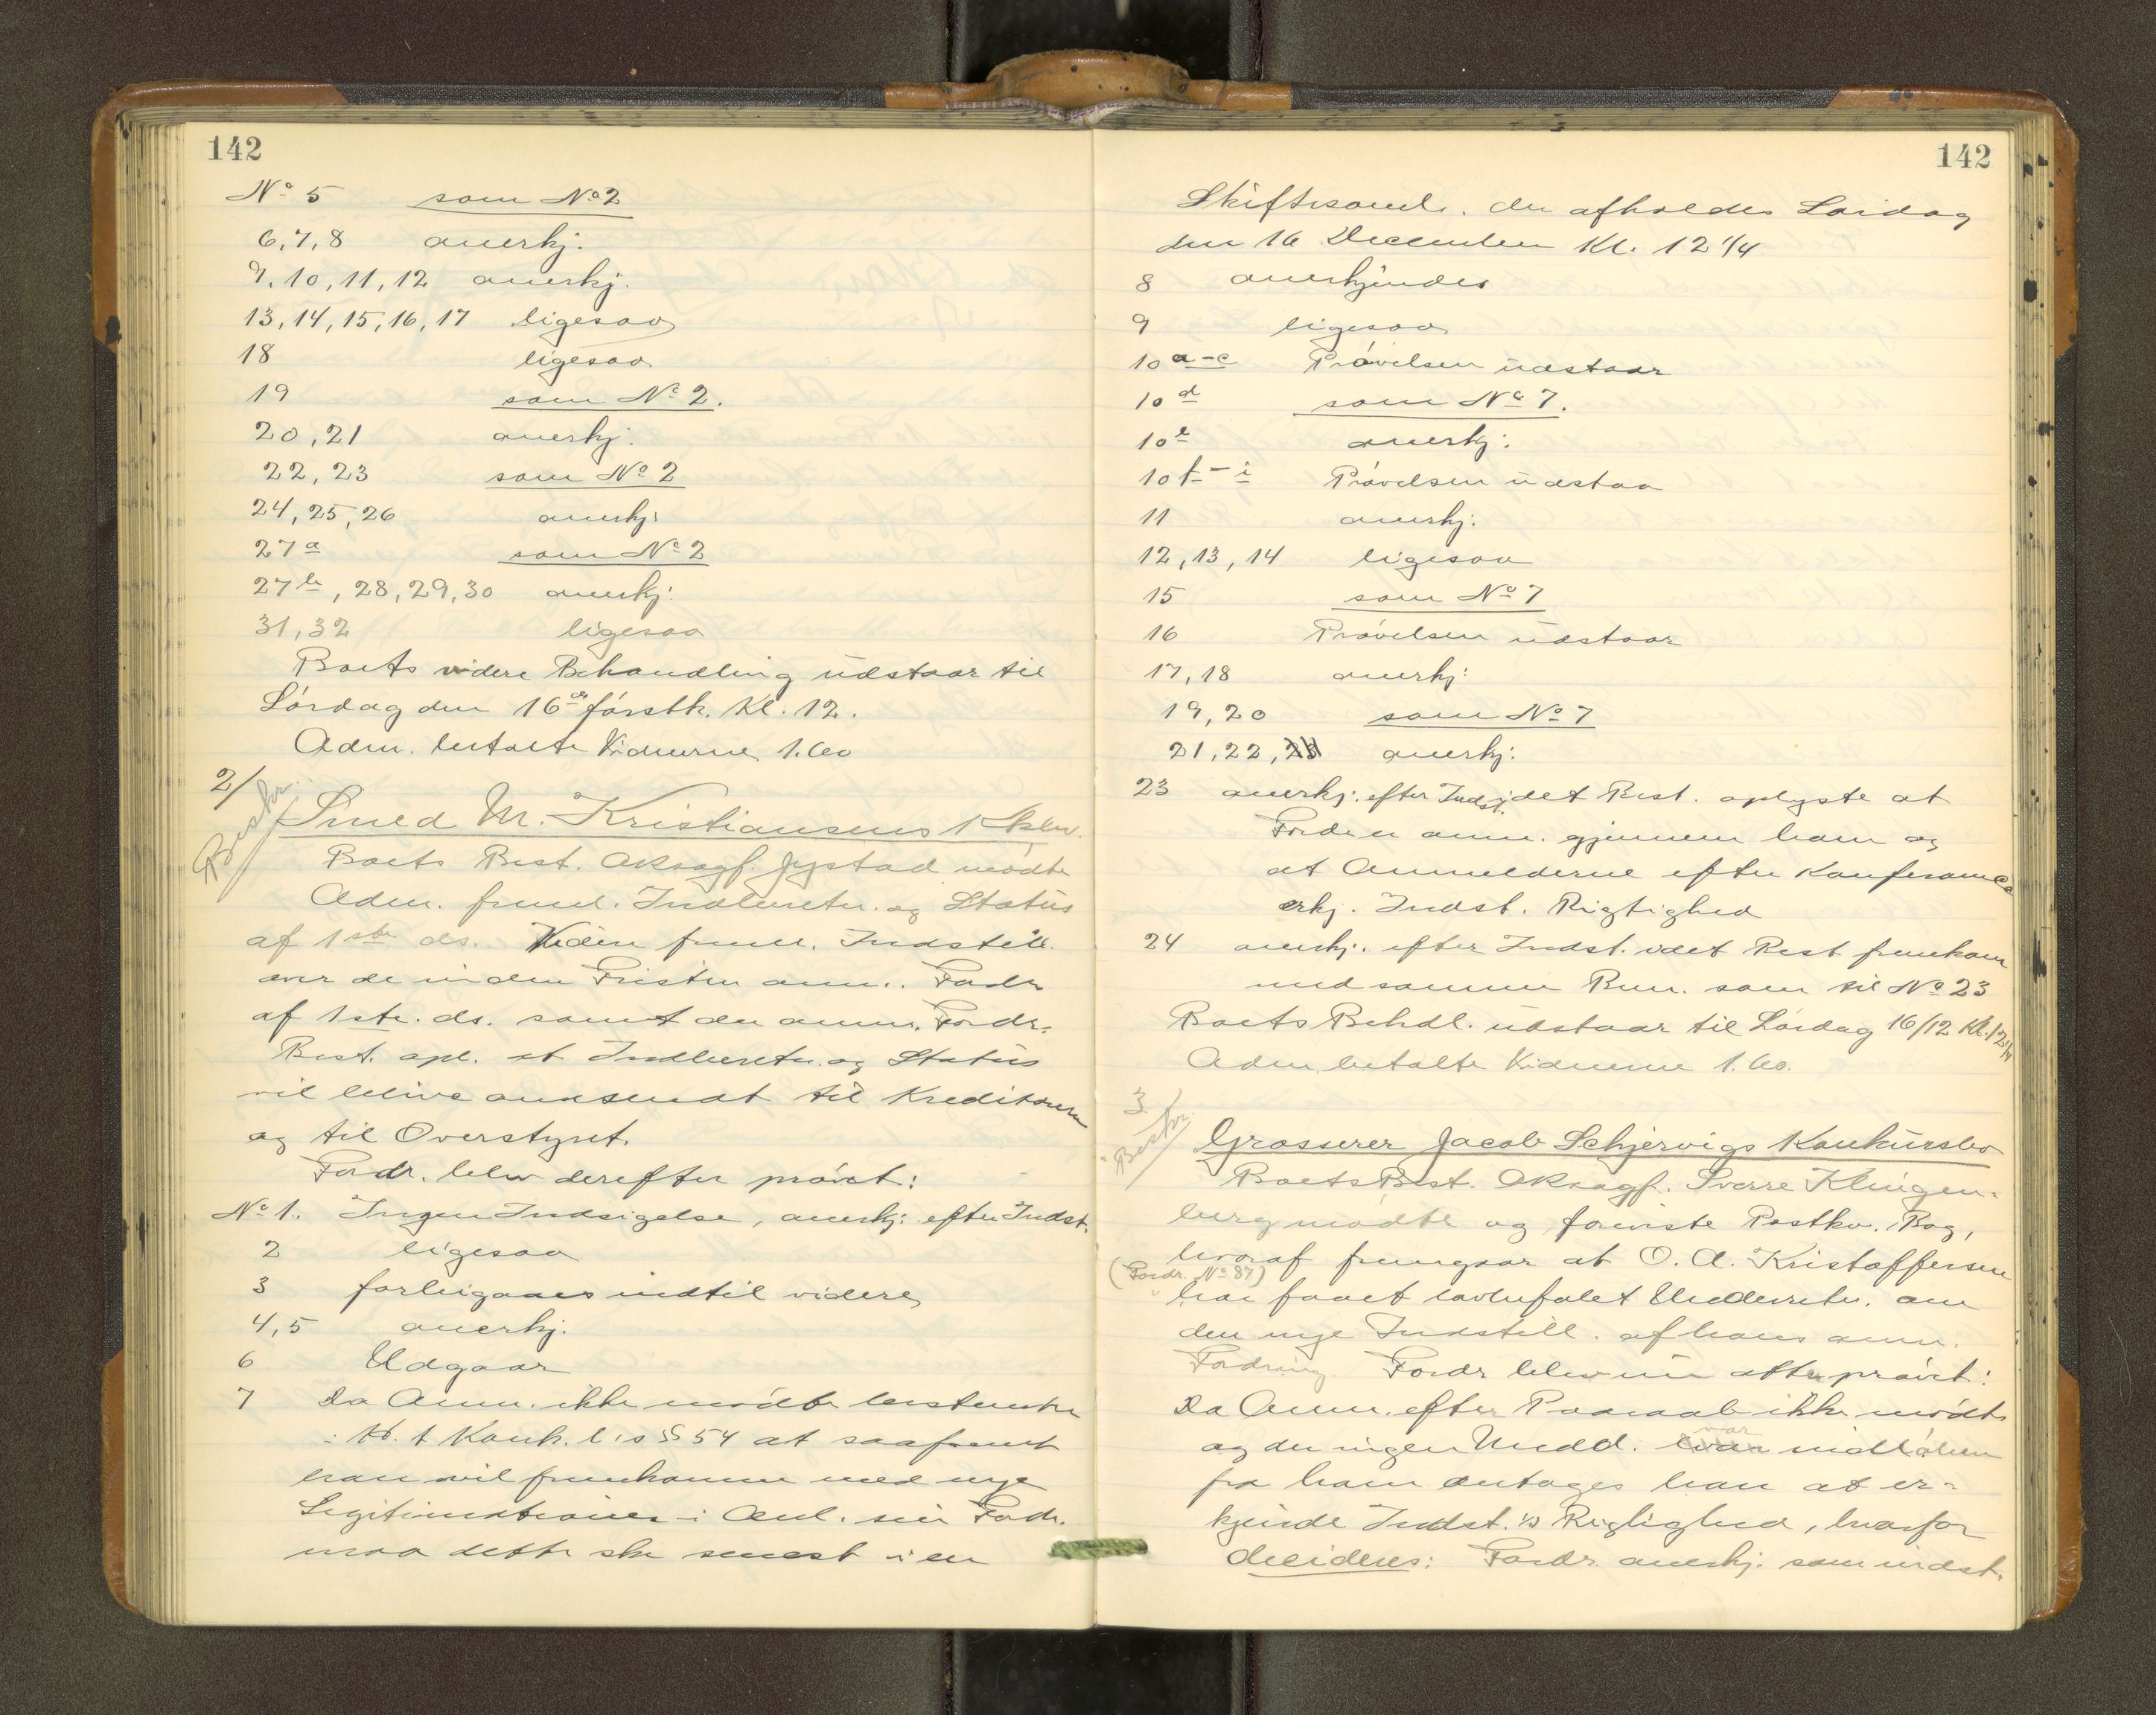 142
No 5 som No 2
6, 7, 8 anerkj.
9, 10, 11, 12 anerkj.
13, 14, 15, 16, 17 ligesaa
18 ligesaa
19 som No 2.
20, 21 anerkj.
22, 23 som No 2
24, 25, 26 anerkj.
27 a som No 2
27 b, 28, 29, 30 anerkj.
31, 32 ligesaa
Boets videre Behandling udstaar til
Lørdag den 16de førstk. Kl. 12.
Adm. betalte Vidnerne 1.60
2/
Beskr.
Smed M. Kristiansens Kksbo.
Boets Best. Oksagf. Jystad mødte
Adm. freml. Indberetn. og Status
af 1ste ds. Videre freml. Indstill.
over de inden Fristen anm. Fordr.
af 1ste ds. samt de anm. Fordr.
Best. opl. at Indberetn. og Status
vil blive omsendt til Kreditorerne
og til Overstyret.
Fordr. blev derefter prøvet:
No 1. Ingen Indsigelse, anerkj. efter Indst.
2 ligesaa
3 forbigaaes indtil videre
4, 5 anerkj.
6 Udgaar
7 Da Anm. ikke mødte bestemtes
i H. t Konk. l's § 54 at saafremt
han vil fremkomme med nye
Legitimationer i Anl. sin Fordr.
maa dette ske senest i en
142
Skiftesaml. der afholdes Lørdag
den 16 December Kl. 12 1/4
8 anerkjendes
9 ligesaa
10 a-c Prøvelsen udstaar
10 d som No 7.
10 e anerkj.
10 f-i Prøvelsen udstaa
11 anerkj.
12, 13, 14 ligesaa
15 som No 7
16 Prøvelsen udstaar
17, 18 anerkj.
19, 20 som No 7
21, 22, 23 anerkj.
23 anerkj. efter Indst. idet Best. oplyste at
Fordr. er anm. gjennem ham og
at Anmelderne efter Konferance
erkj. Indst. Rigtighed
24 anerkj. efter Indst. idet Best fremkom
med samme Bem. som til No 23
Boets Behdl. udstaar til Lørdag 16/12 Kl. 12 1/4
Adm. betalte Vidnerne 1.60.
3
Beskr.
Grosserer Jacob Schjervigs Konkursbo
Boets Best. Oksagf. Sverre Klingen-
berg mødte og foreviste Postkv. Bog,
hvoraf fremgaar at O. A. Kristoffersen
(Fordr. No 87)
har faaet Underretn. om
den nye Indstill. af hans anm.
Fordring. Fordr blev nu atter prøvet:
Da Anm. efter Paaraab ikke mødte
og der ingen Medd. var indløben
fra ham antages han at er-
kjende Indst.'s Rigtighed, hvorfor
decideres: Fordr. anerkj. som indst.